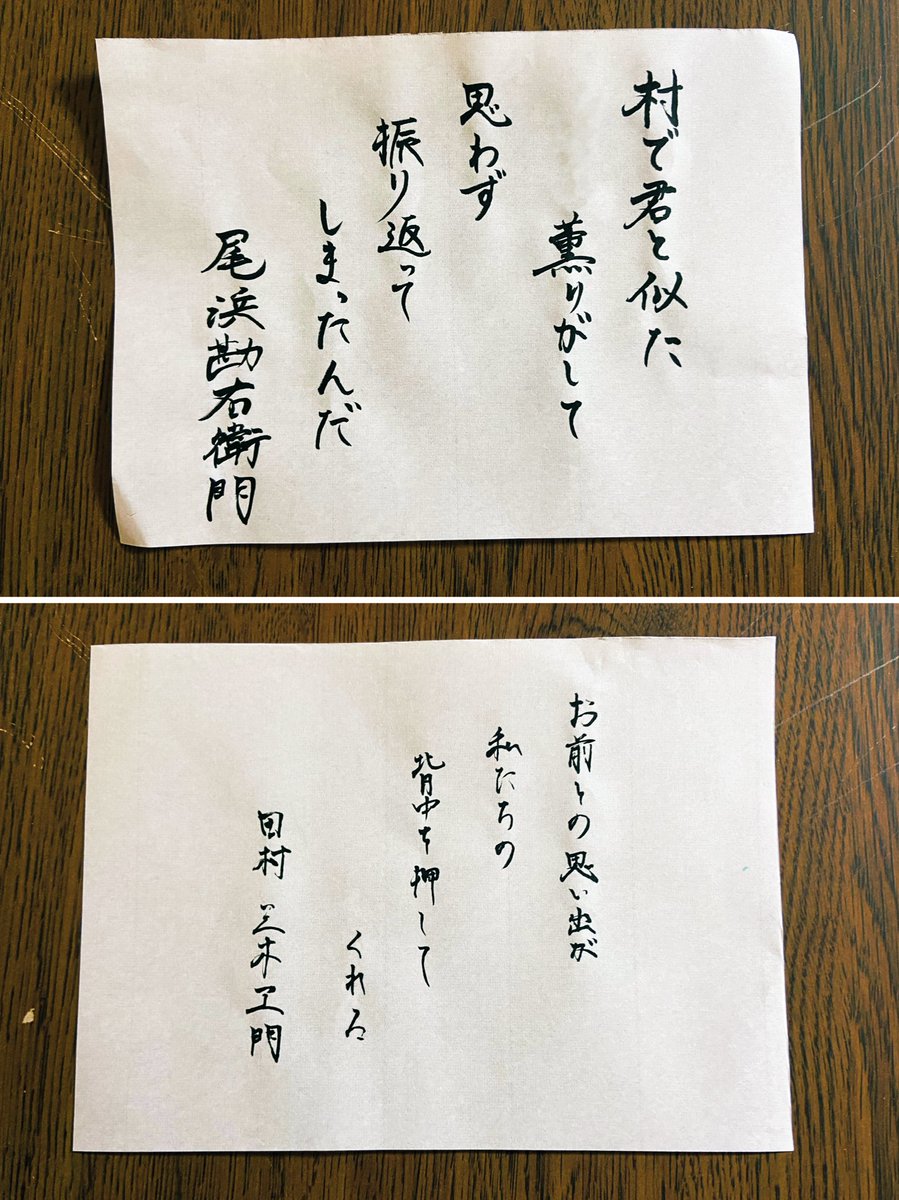 村で君と似た
薫りがして
思わず
振り返って
しまったんだ
尾浜勘右衛門
お前との思い出が
私たちの
背中を押して
くれる
田村三木ヱ門